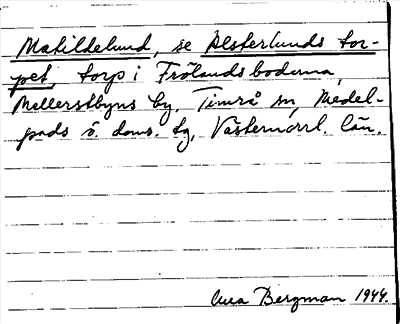 Matildelund, se Alsterlunds tor-
pet torp i Frölandsbodarna,
Mellerstbyns by, Timrå sn, Medel-
pads ö. doms. tg, Västernorrl. län.
Bergman 1944.